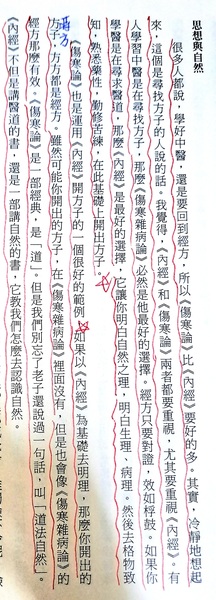 思想與自然
很多人都說，學好中醫，還是要回到經方，所以《傷寒論》比《內經》要好的多。其實，冷靜地想起
來，這個是尋找方子的人說的話。我覺得，《內經》和《傷寒論》兩者都要重視，尤其要重視《內經》。有
人學習中醫是在尋找方子，那麼《傷寒雜病論》必然是他最好的選擇。經方只要對證，效如桴鼓。如果你
學醫是在尋求醫道，那麼《內經》是最好的選擇，它讓你明白自然之理，明白生理、病理。然後去格物致
知，熟悉藥性，勤修苦練，在此基礎上開出方子。
《傷寒論》也是運用《內經》開方子的一個很好的範例。如果以《內經》為基礎去明理，那麼你開出的
方子，方方都是經方。雖然可能你開出的方子，在《傷寒雜病論》裡面沒有，但是也會像《傷寒雜病論》的
經方那麼有效。《傷寒論》是一部經典，是「道」，但是我們別忘了老子還說過一句話，叫「道法自然」。
《內經》不但是講醫道的書，還是一部講自然的書，它教我們怎麼去認識自然。